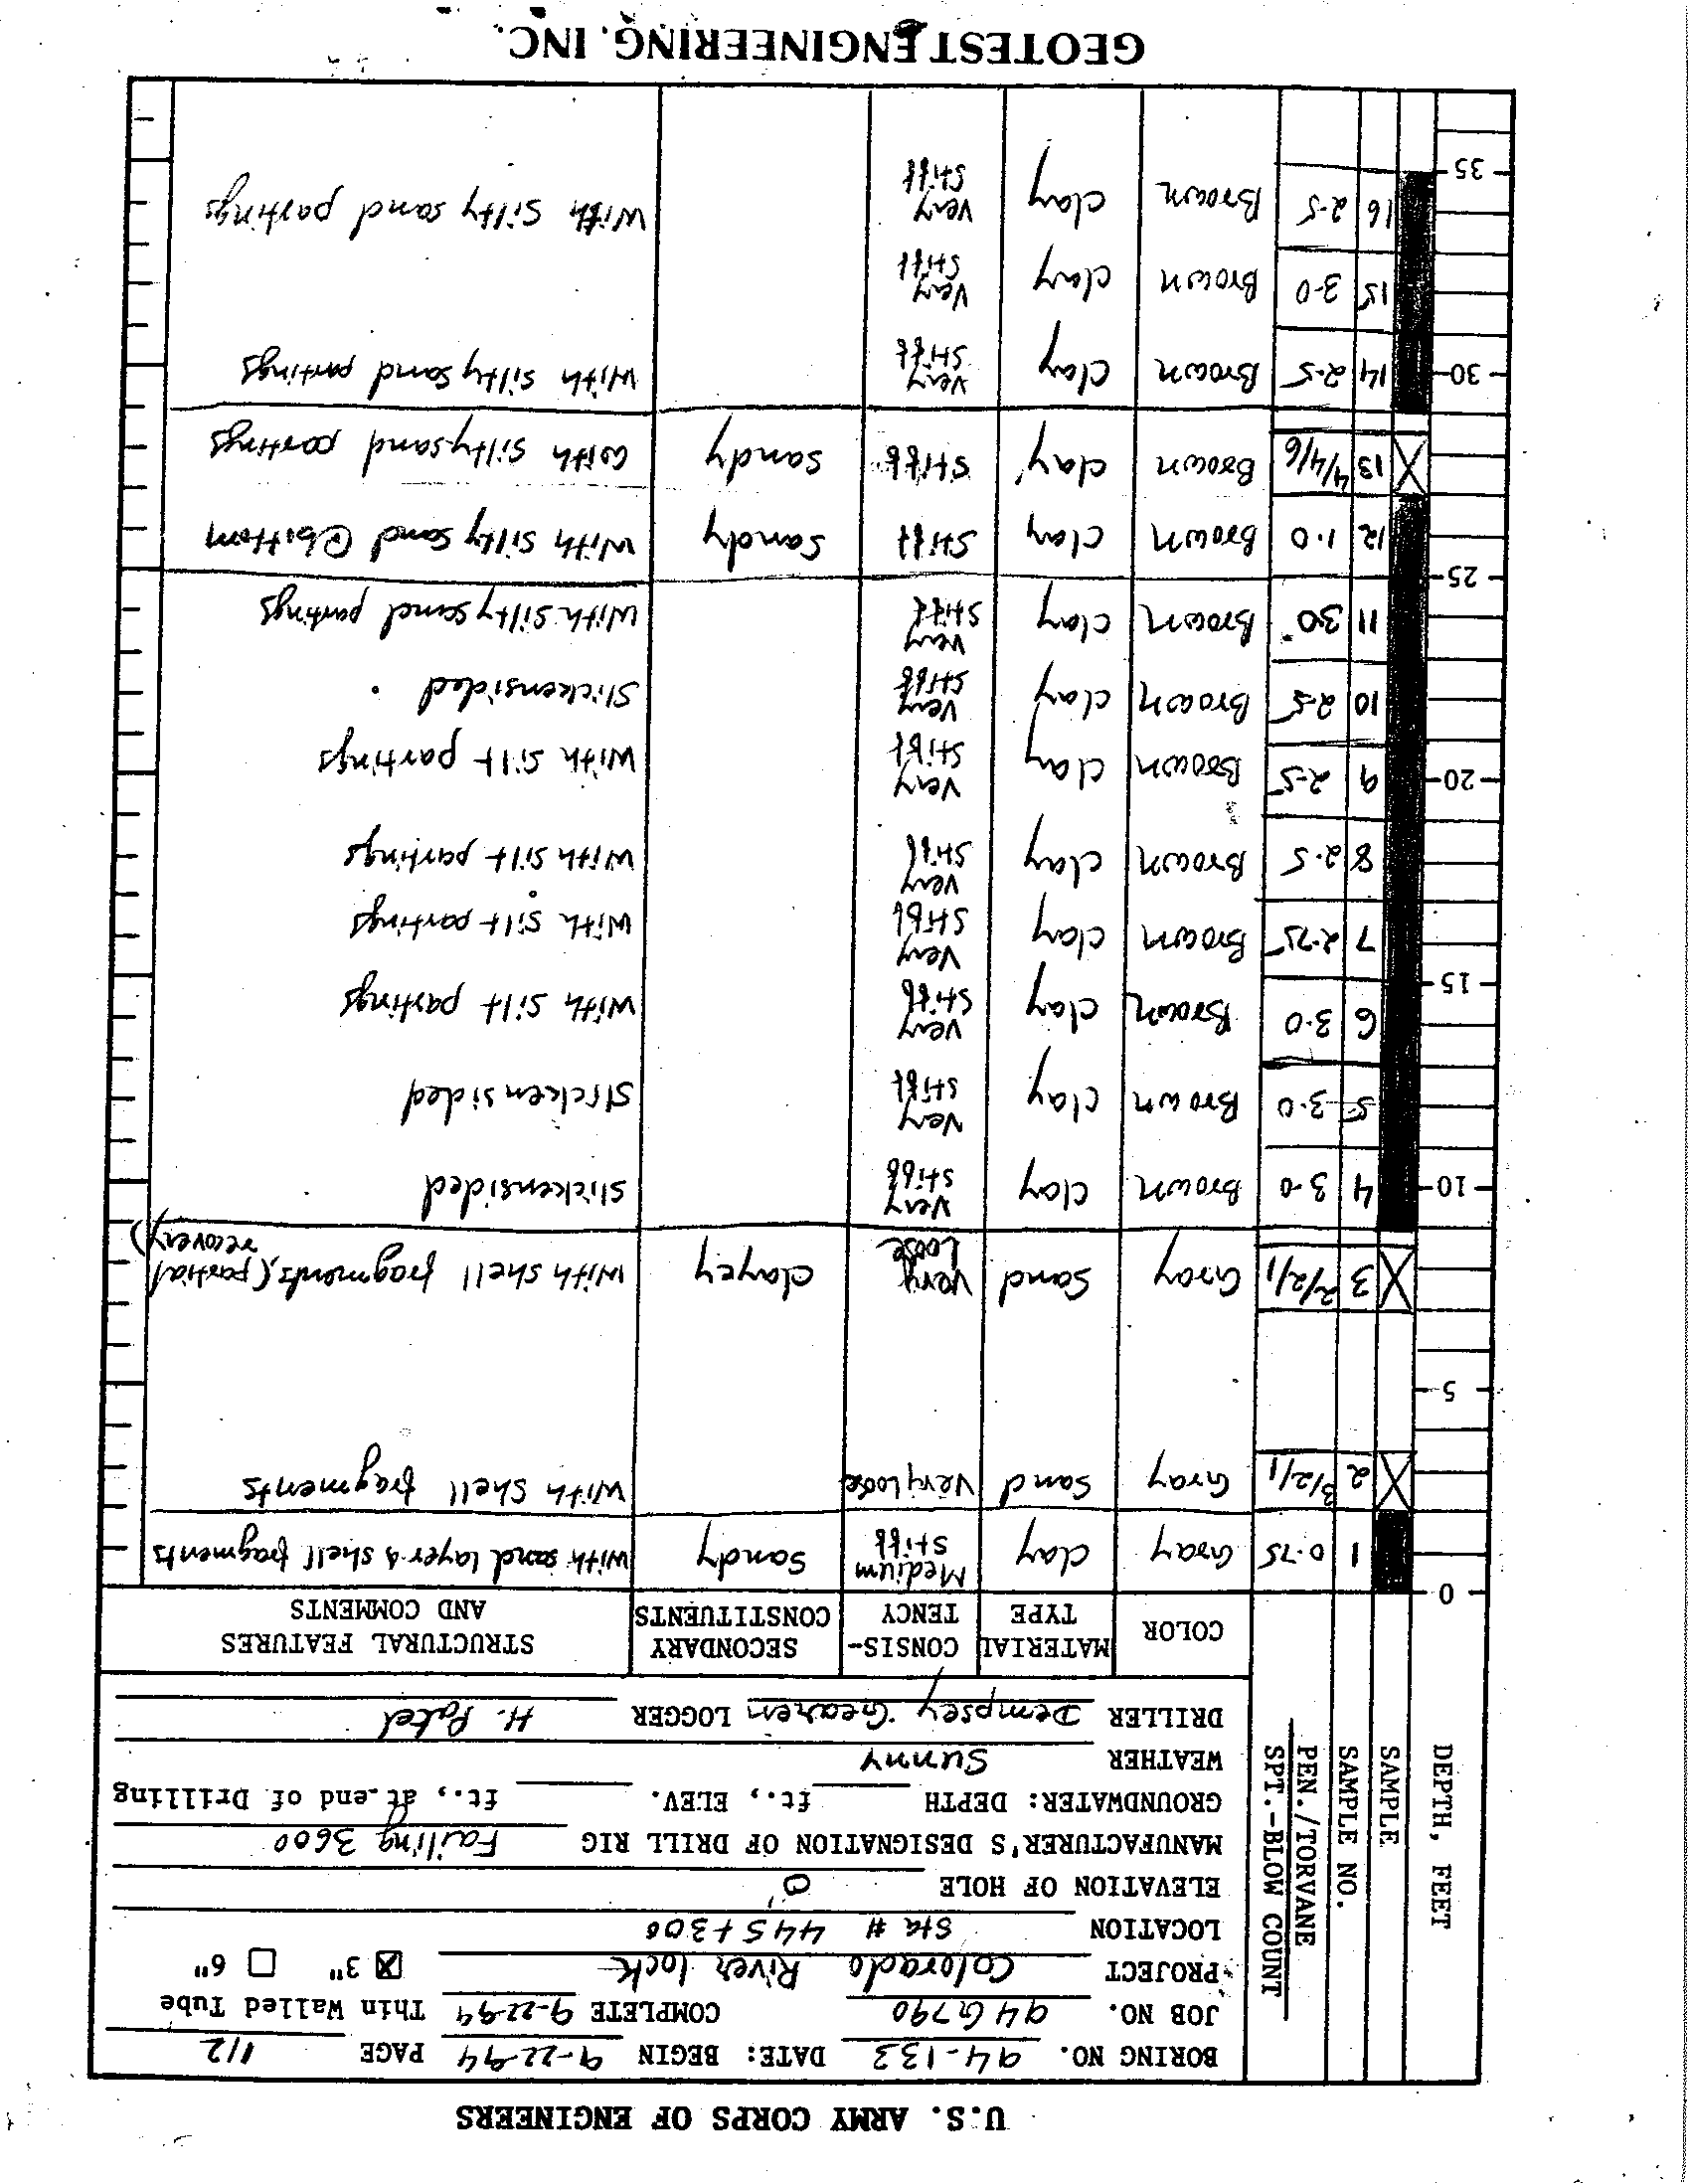 U.S. ARMY CORPS OF ENGINEERS
BORING NO. 94-133 DATE: BEGIN 9-22-94 PAGE 1/2
JOB NO. 94G790 COMPLETE 9-22-94 Thin Walled Tube
PROJECT Colorado River lock ☒ 3" ☐ 6"
LOCATION Sta # 445+300
ELEVATION OF HOLE 0'
MANUFACTURER'S DESIGNATION OF DRILL RIG Failing 3600
GROUNDWATER: DEPTH ft., ELEV. ft., at end of Drilling
WEATHER Sunny
DRILLER Dempsey Gearen LOGGER H. Patel
DEPTH, FEET
SAMPLE
SAMPLE NO.
PEN./TORVANE
SPT.-BLOW COUNT
COLOR
MATERIAL TYPE
CONSIS-TENCY
SECONDARY CONSTITUENTS
STRUCTURAL FEATURES AND COMMENTS
0
1 0.75 Gray Clay Medium Stiff Sandy with sand layer & shell fragments
2 3/2/1 Gray Sand Very loose with shell fragments
5
3 2/2/1 Gray Sand Very Loose clayey with shell fragments, (partial recovery)
10
4 3.0 Brown Clay Very stiff slickensided
5 3.0 Brown Clay Very stiff slickensided
6 3.0 Brown Clay Very stiff with silt partings
15
7 2.75 Brown Clay Very stiff with silt partings
8 2.5 Brown Clay Very stiff with silt partings
20
9 2.5 Brown Clay Very stiff with silt partings
10 2.5 Brown Clay Very stiff Slickensided
11 3.0 Brown Clay Very stiff with silty sand partings
25
12 1.0 Brown Clay Stiff Sandy with silty sand @ bottom
13 4/4/6 Brown Clay Stiff Sandy with silty sand partings
30
14 2.5 Brown Clay Very stiff with silty sand partings
15 3.0 Brown Clay Very stiff
16 2.5 Brown Clay Very stiff with silty sand partings
35
GEOTEST ENGINEERING, INC.